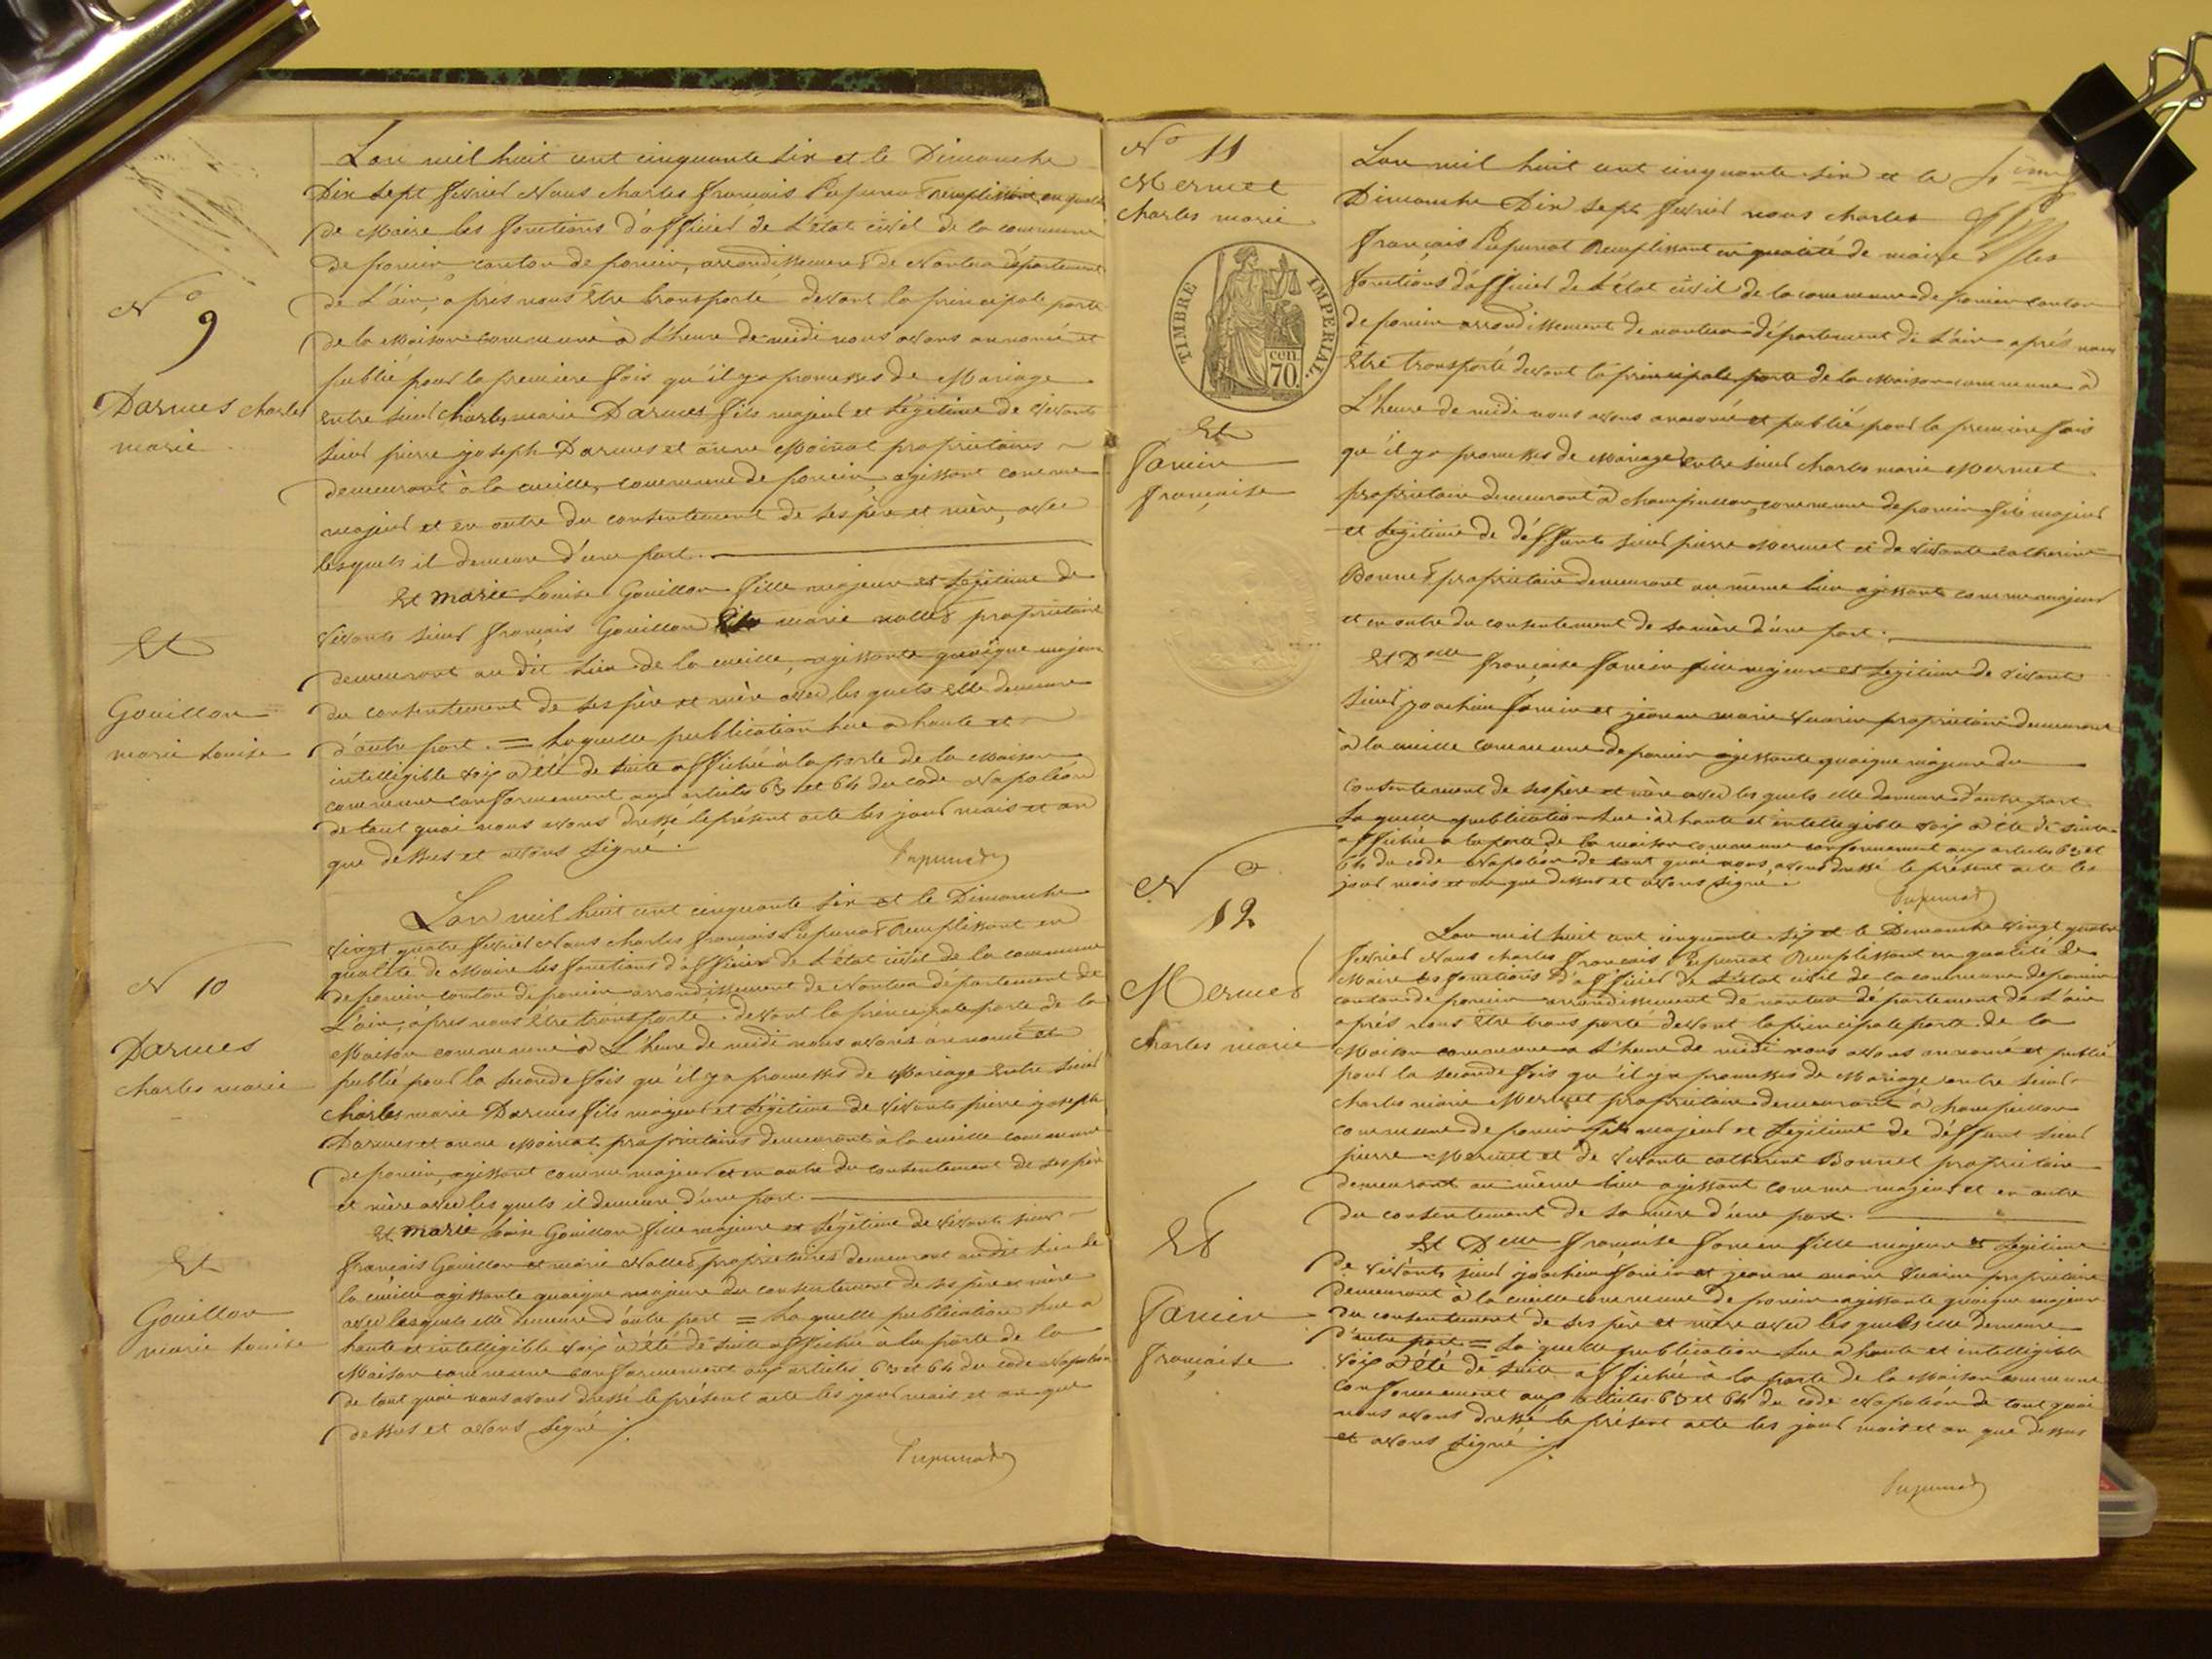 N° 9
Darmes Charles
marie
Et
Gouillon
marie Louise
L'an mil huit cent cinquante six et le Dimanche
Dix sept fevrier Nous charles francois remplissant en qualité
de Maire les fonctions d'officier de L'état civil de la commune
de poncin, canton de poncin, arrondissement de Nantua département
de L'ain, après nous être transporté devant la principale porte
de la Maison commune à L'heure de midi nous avons annoncé et
publié pour la premiere fois qu'il y a promesses de Mariage
entre sieur Charles marie Darmes fils majeur et Légitime de vivants
sieur pierre joseph Darmes et anne Moinat propriétaires
demeurant à la cueille, commune de poncin, agissant comme
majeur et en outre du consentement de ses père et mère, avec
lesquels il demeure d'une part.
Et marie Louise Gouillon fille majeure et Légitime de
vivants sieur francois Gouillon marie nallet propriétaire
demeurant au dit Lieu de la cueille, agissante quoique majeure
du consentement de ses père et mère avec les quels elle demeure
d'autre part. = Laquelle publication lue a haute et
intelligible voix a été de suite affichée à la porte de la Maison
commune conformement aux articles 63 et 64 du code Napoléon
de tout quoi nous avons dressé le présent acte les jour mois et an
que dessus et avons signé.
N 10
Darmes
charles marie
Et
Gouillon
marie Louise
L'an mil huit cent cinquante six et le Dimanche
vingt quatre fevrier Nous charles francois Remplissant en
qualité de Maire les fonctions d'officier de L'état civil de la commune
de poncin canton de poncin arrondissement de Nantua département de
L'ain, après nous être transporté devant la principale porte de la
Maison commune à L'heure de midi nous avons annoncé et
publié pour la seconde fois qu'il y a promesses de Mariage entre sieur
Charles marie Darmes fils majeur et Légitime de vivants pierre joseph
Darmes et anne Moinat propriétaires demeurant à la cueille commune
de poncin, agissant comme majeur et en outre du consentement de ses père
et mère avec les quels il demeure d'une part.
Et marie Louise Gouillon fille majeure et Légitime de vivants sieur
francois Gouillon et marie Nallet propriétaires demeurant audit lieu de
la cueille agissante quoique majeure du consentement de ses père et mère
avec lesquels elle demeure d'autre part = Laquelle publication lue a
haute et intelligible voix a été de suite affichée à la porte de la
Maison commune conformement aux articles 63 et 64 du code Napoléon
de tout quoi nous avons dressé le présent acte les jour mois et an que
dessus et avons signé.
N° 11
Mermet
Charles marie
TIMBRE IMPERIAL
70 cen
Et
françoise
L'an mil huit cent cinquante six et le
Dimanche Dix sept fevrier nous charles
françois Remplissant en qualité de maire les
fonctions d'officier de L'état civil de la commune de poncin canton
de poncin arrondissement de nantua département de L'ain après nous
être transporté devant la principale porte de la Maison commune à
L'heure de midi nous avons annoncé et publié pour la premiere fois
qu'il y a promesses de Mariage entre sieur Charles marie Mermet
propriétaire demeurant à champeillon, commune de poncin fils majeur
et Légitime de déffunt sieur pierre Mermet et de vivante catherine
Bonnet propriétaire demeurant au même lieu agissant comme majeur
et en outre du consentement de sa mère d'une part.
Et Delle françoise fille majeure et Légitime de vivants
sieur joachim et jeanne marie propriétaire demeurant
à la cueille commune de poncin agissante quoique majeure du
consentement de ses père et mère avec les quels elle demeure d'autre part.
La quelle publication lue à haute et intelligible voix a été de suite
affichée a la porte de la maison commune conformement aux articles 63 et
64 du code Napoléon de tout quoi nous avons dressé le présent acte les
jour mois et an que dessus et avons signé.
N° 12
Mermet
charles marie
Et
françoise
L'an mil huit cent cinquante six et le Dimanche vingt quatre
fevrier Nous charles francois Remplissant en qualité de
Maire les fonctions d'officier de L'état civil de la commune de poncin
canton de poncin arrondissement de nantua département de L'ain
après nous être transporté devant la principale porte de la
Maison commune a L'heure de midi nous avons annoncé et publié
pour la seconde fois qu'il y a promesses de Mariage entre sieur
charles marie Mermet propriétaire demeurant à champeillon
commune de poncin fils majeur et Légitime de déffunt sieur
pierre Mermet et de vivante catherine Bonnet propriétaire
demeurant au même lieu agissant comme majeur et en outre
du consentement de sa mère d'une part.
Et Delle françoise fille majeure et Légitime
de vivants sieur joachim et jeanne marie propriétaire
demeurant à la cueille commune de poncin agissante quoique majeure
du consentement de ses père et mère avec les quels elle demeure
d'autre part = La quelle publication lue a haute et intelligible
voix a été de suite affichée à la porte de la Maison commune
conformement aux articles 63 et 64 du code Napoléon de tout quoi
nous avons dressé le présent acte les jour mois et an que dessus
et avons signé.